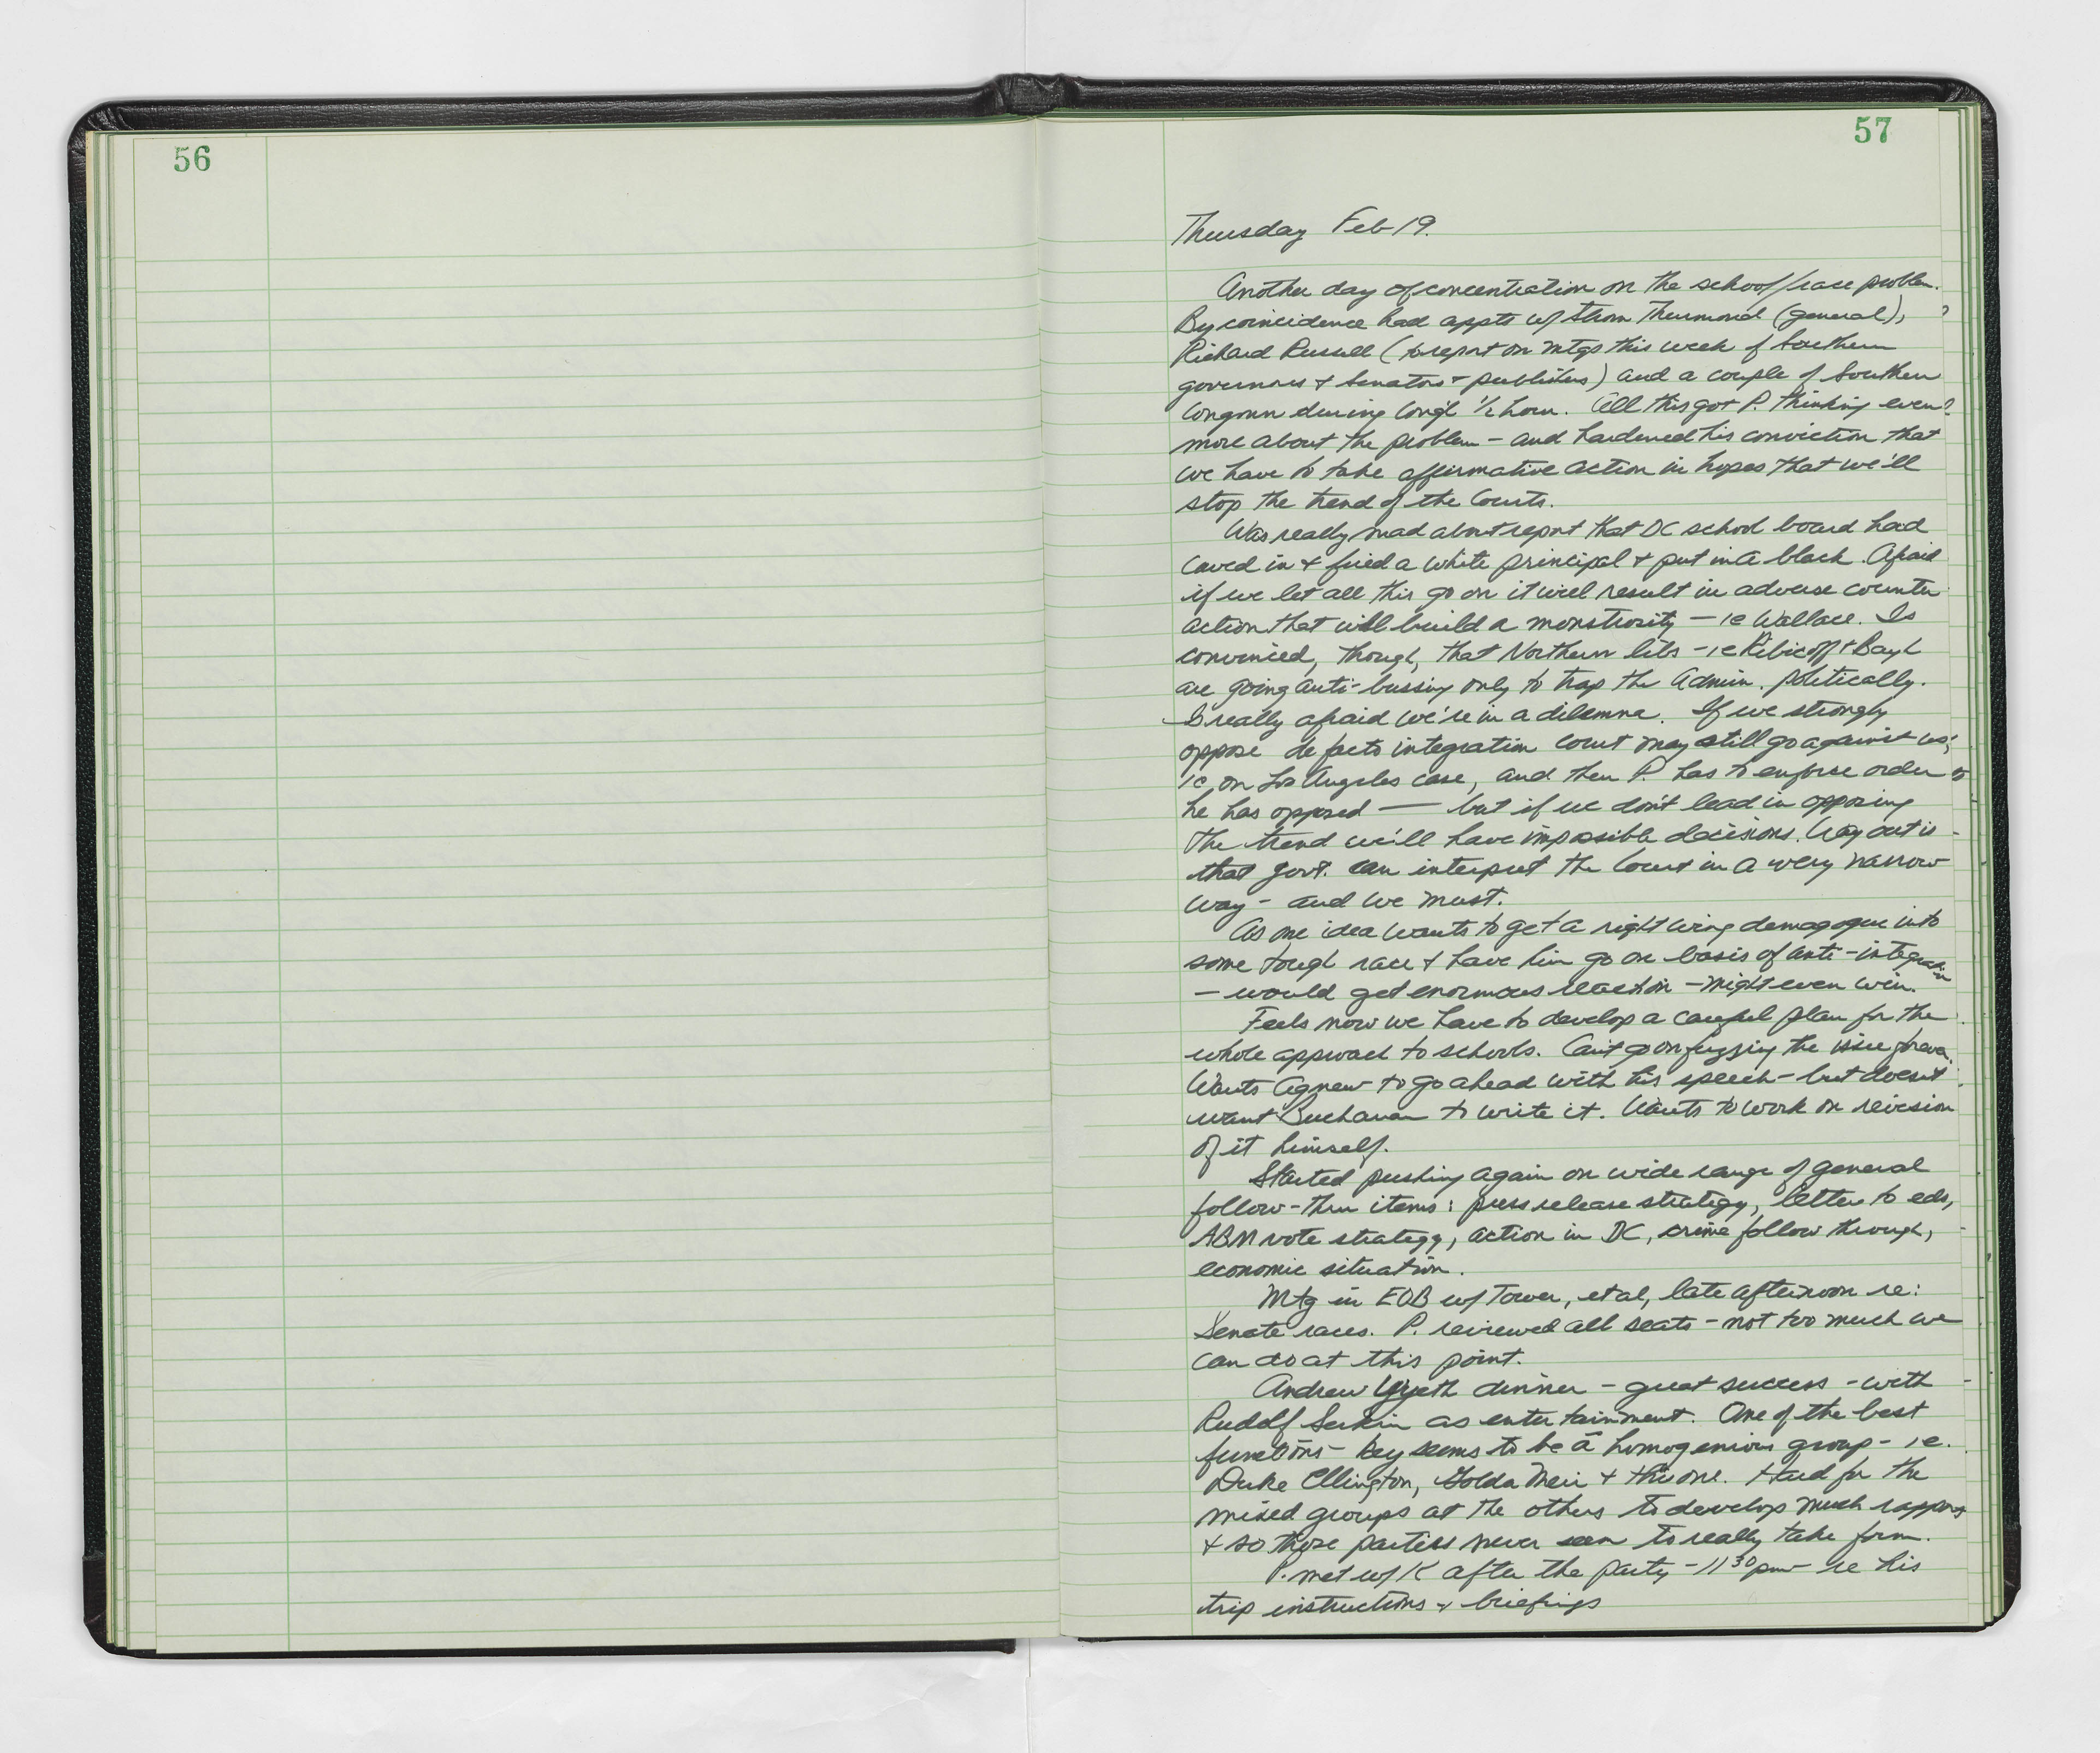 56
57
Thursday Feb 19.
Another day of concentration on the school/race problem.
By coincidence had appts w/ Strom Thurmond (general),
Richard Russell (to report on mtgs this week of Southern
governors & Senators & publishers) and a couple of Southern
Congmn during Cong'l ½ hour. All this got P. thinking even
more about the problem - and hardened his conviction that
we have to take affirmative action in hopes that we'll
stop the trend of the Courts.
Was really mad about report that DC school board had
caved in & fired a white principal & put in a black. Afraid
if we let all this go on it will result in adverse counter
action that will build a monstrosity - ie Wallace. Is
convinced, though, that Northern libs - ie Ribicoff & Bayh
are going anti-bussing only to trap the Admin. politically.
Is really afraid we're in a dilemna. If we strongly
oppose de facto integration Court may still go against us,
ie, on Los Angeles case, and then P. has to enforce order
he has opposed — but if we don't lead in opposing
the trend we'll have impossible decisions. Way out is
that govt. can interpret the Court in a very narrow
way - and we must.
As one idea wants to get a right wing demagogue into
some tough race & have him go on basis of anti-integration
- would get enormous reaction - might even win.
Feels now we have to develop a careful plan for the
whole approach to schools. Can't go on fuzzing the issue forever.
Wants Agnew to go ahead with his speech - but doesn't
want Buchanan to write it. Wants to work on revision
of it himself.
Started pushing again on wide range of general
follow-thru items: press release strategy, letters to eds,
ABM vote strategy, action in DC, crime follow through,
economic situation.
Mtg in EOB w/ Tower, et al, late afternoon re:
Senate races. P. reviewed all seats - not too much we
can do at this point.
Andrew Wyeth dinner - great success - with
Rudolf Serkin as entertainment. One of the best
functions - key seems to be a homogenious group - ie.
Duke Ellington, Golda Meir & this one. Hard for the
mixed groups at the others to develop much rapport
& so those parties never seem to really take form.
P. met w/ K after the party - 11 30 pm re his
trip instructions & briefings